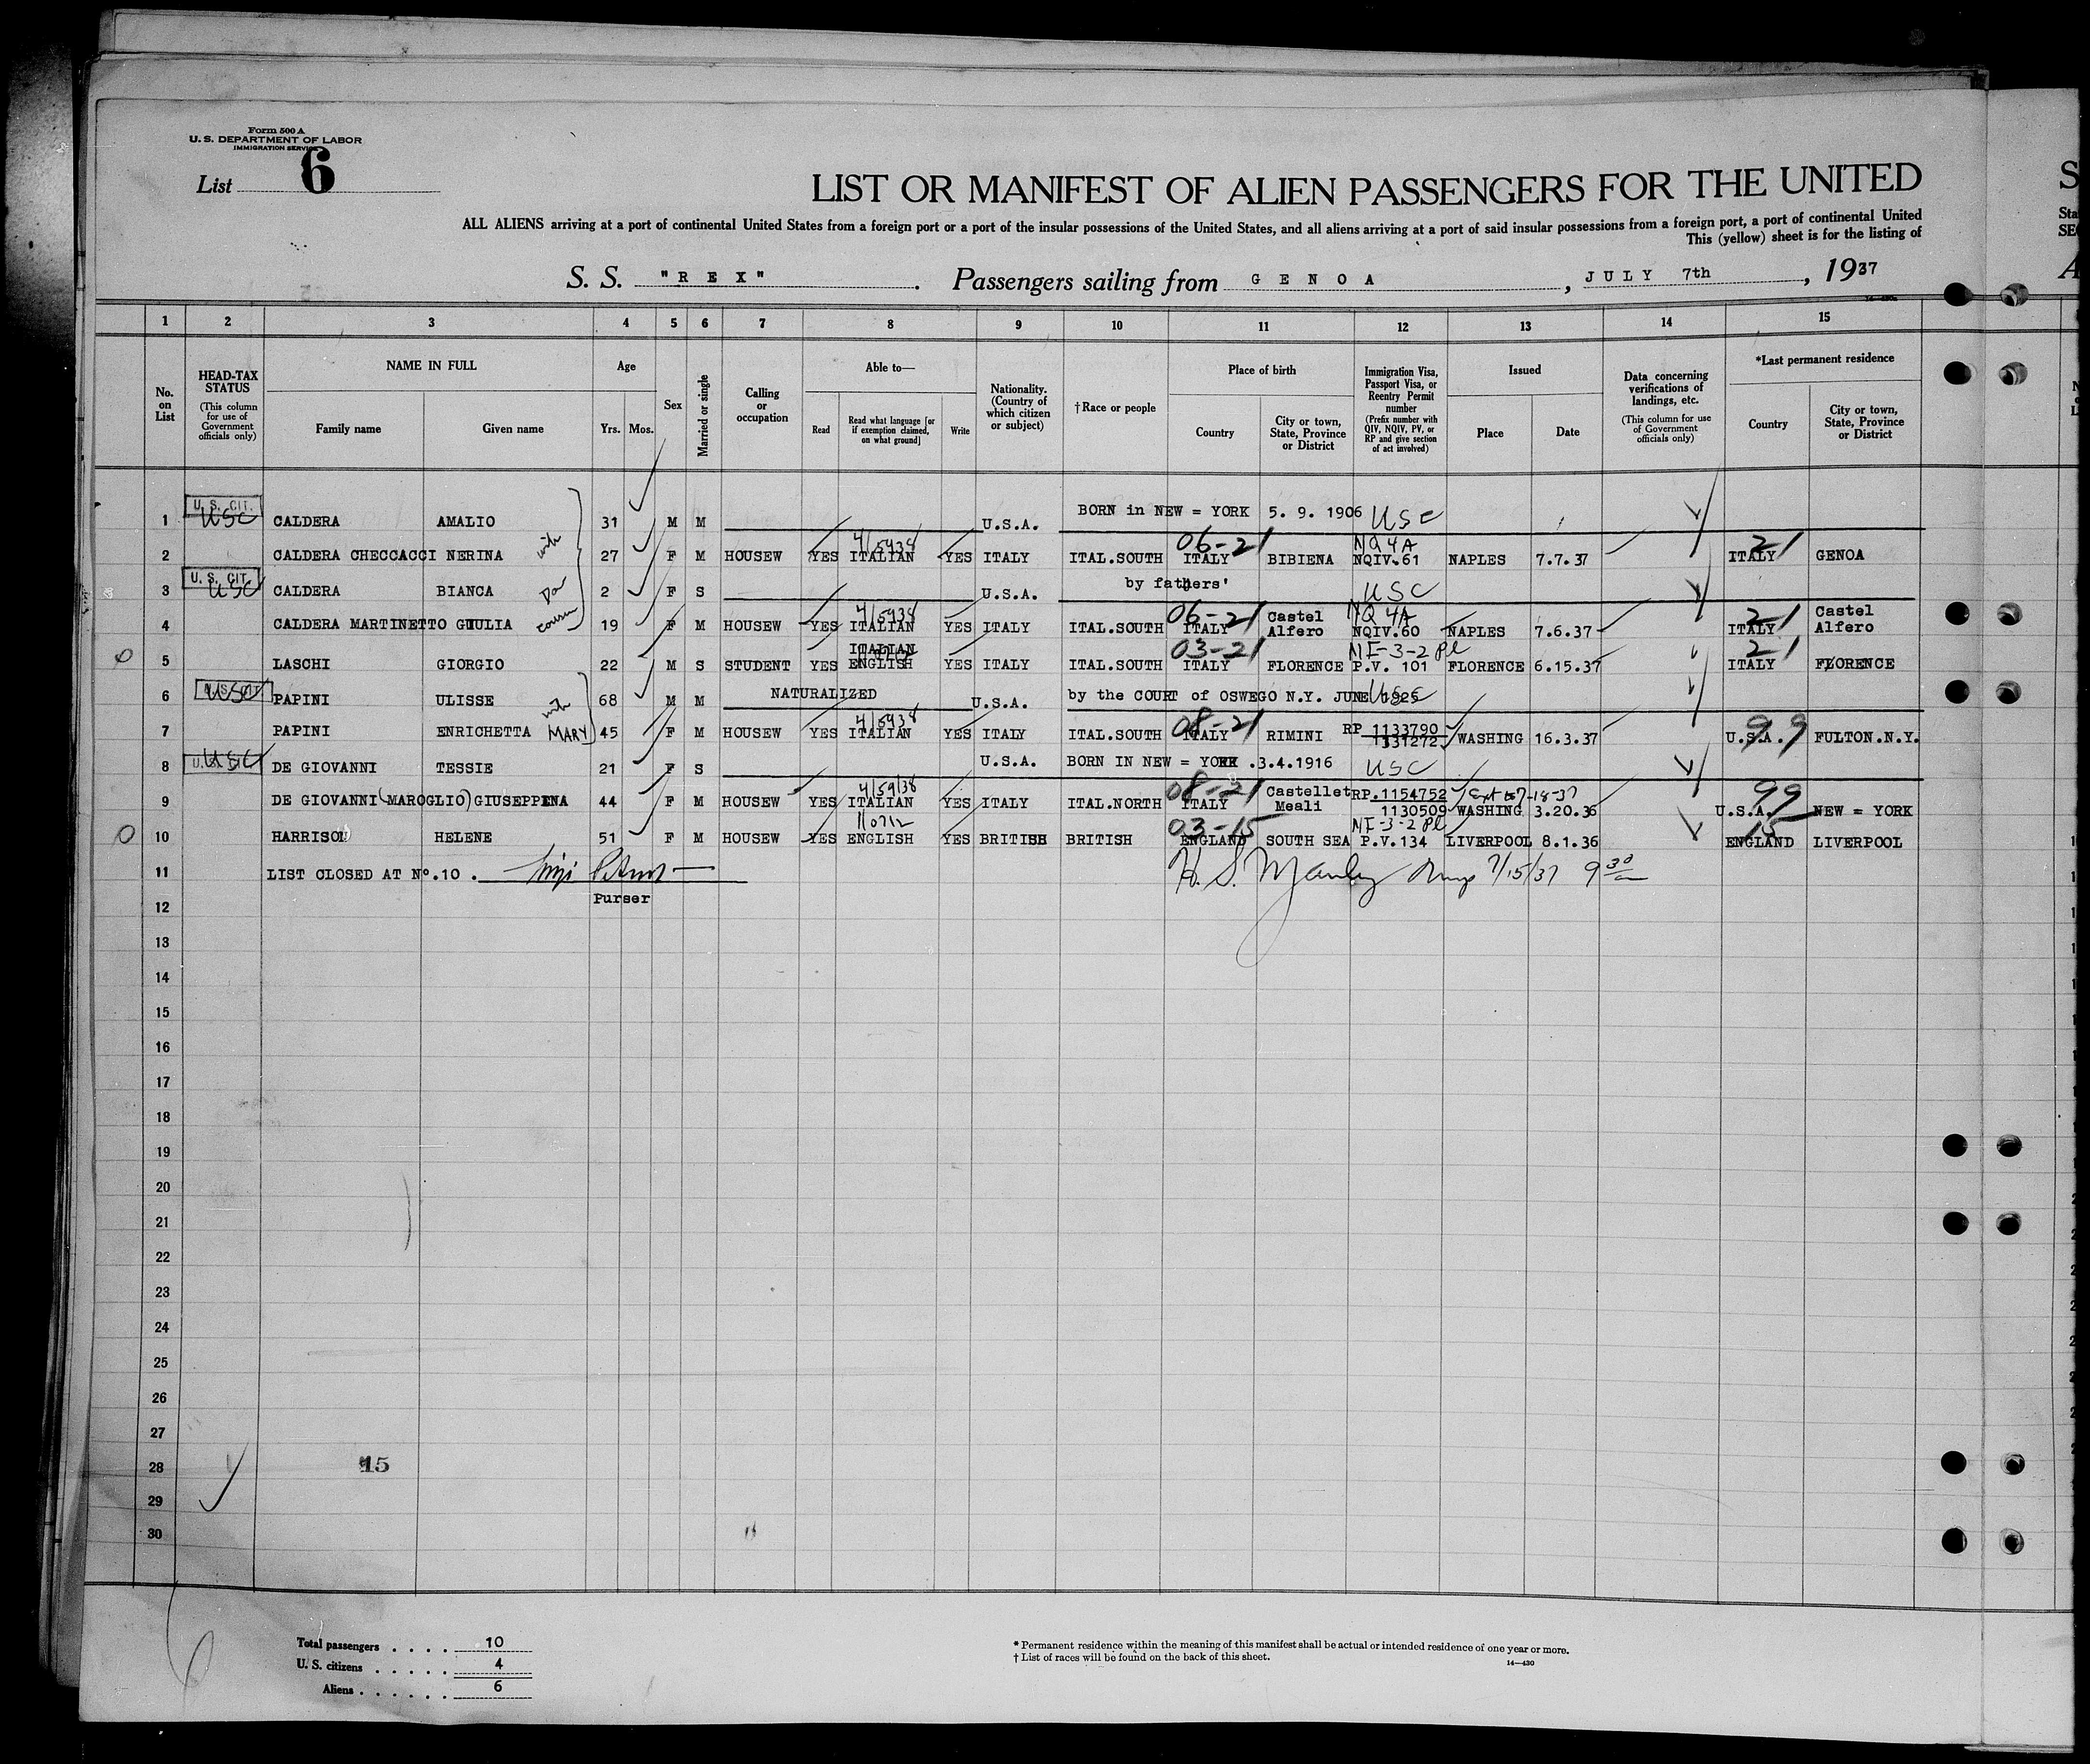 Form 500 A
U. S. DEPARTMENT OF LABOR
IMMIGRATION SERVICE
List 6
LIST OR MANIFEST OF ALIEN PASSENGERS FOR THE UNITED
ALL ALIENS arriving at a port of continental United States from a foreign port or a port of the insular possessions of the United States, and all aliens arriving at a port of said insular possessions from a foreign port, a port of continental United
This (yellow) sheet is for the listing of
S. S. "REX". Passengers sailing from GENOA, JULY 7th, 1937
1 2 3 4 5 6 7 8 9 10 11 12 13 14 15
No. on List
HEAD-TAX STATUS (This column for use of Government officials only)
NAME IN FULL Family name Given name
Age Yrs. Mos.
Sex
Married or single
Calling or occupation
Able to— Read Read what language [or if exemption claimed, on what ground] Write
Nationality. (Country of which citizen or subject)
†Race or people
Place of birth Country City or town, State, Province or District
Immigration Visa, Passport Visa, or Reentry Permit number (Prefix number with QIV, NQIV, PV, or RP and give section of act involved)
Issued Place Date
Data concerning verifications of landings, etc. (This column for use of Government officials only)
*Last permanent residence Country City or town, State, Province or District
1 U. S. CIT. USC CALDERA AMALIO 31 M M U.S.A. BORN in NEW = YORK 5. 9. 1906 USC
4/5938 06-21 NQ 4A 21
2 CALDERA CHECCACCI NERINA with 27 F M HOUSEW YES ITALIAN YES ITALY ITAL.SOUTH ITALY BIBIENA NQIV.61 NAPLES 7.7.37 ITALY GENOA
3 U. S. CIT. USC CALDERA BIANCA 2 F S U.S.A. by fathers' USC
4/5938 06-21 NQ 4A 21
4 CALDERA MARTINETTO GIULIA cousin 19 F M HOUSEW YES ITALIAN YES ITALY ITAL.SOUTH ITALY Castel Alfero NQIV.60 NAPLES 7.6.37 ITALY Castel Alfero
03-21 NI-3-2 Pl 21
5 LASCHI GIORGIO 22 M S STUDENT YES ITALIAN ENGLISH YES ITALY ITAL.SOUTH ITALY FLORENCE P.V. 101 FLORENCE 6.15.37 ITALY FLORENCE
6 USC PAPINI ULISSE 68 M M NATURALIZED U.S.A. by the COURT of OSWEGO N.Y. JUNE 1925 USC
with 4/5938 08-21 99
7 PAPINI ENRICHETTA MARY 45 F M HOUSEW YES ITALIAN YES ITALY ITAL.SOUTH ITALY RIMINI RP 1133790 1331272 WASHING 16.3.37 U.S.A. FULTON.N.Y.
8 USC DE GIOVANNI TESSIE 21 F S U.S.A. BORN IN NEW = YORK .3.4.1916 USC
4/59/38 08-21 Ext to 7-18-37 99
9 DE GIOVANNI (MAROGLIO) GIUSEPPINA 44 F M HOUSEW YES ITALIAN YES ITALY ITAL.NORTH ITALY Castellet Meali RP.1154752 1130509 WASHING 3.20.36 U.S.A. NEW = YORK
03-15 NI-3-2 Pl 15
10 HARRISON HELENE 51 F M HOUSEW YES ENGLISH YES BRITISH BRITISH ENGLAND SOUTH SEA P.V.134 LIVERPOOL 8.1.36 ENGLAND LIVERPOOL
11 LIST CLOSED AT Nº.10 . H. S. Manley 7/15/37 9 30
Purser
12
13
14
15
16
17
18
19
20
21
22
23
24
25
26
27
28 15
29
30
Total passengers . . . . 10
U. S. citizens . . . . . 4
Aliens . . . . . . 6
* Permanent residence within the meaning of this manifest shall be actual or intended residence of one year or more.
† List of races will be found on the back of this sheet.
14—430